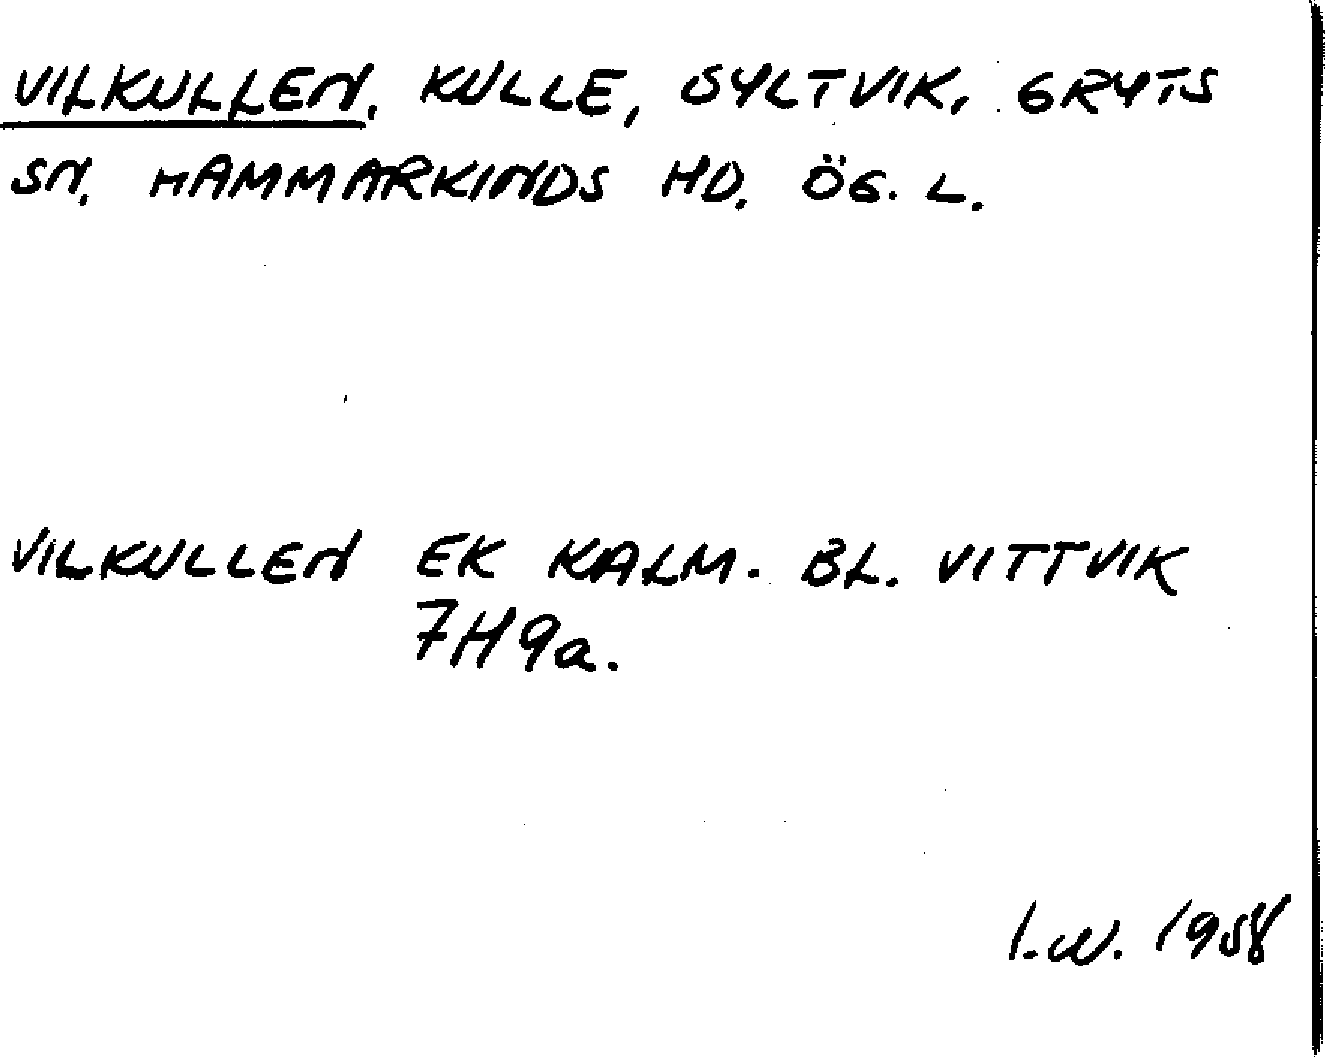 VILKULLEN, KULLE, SYLTVIK, GRYTS
SN. HAMMARKINDS HD. ÖG. L.
VILKULLEN EK KALM. BL. VITTVIK
7H9a.
I.W. 1958